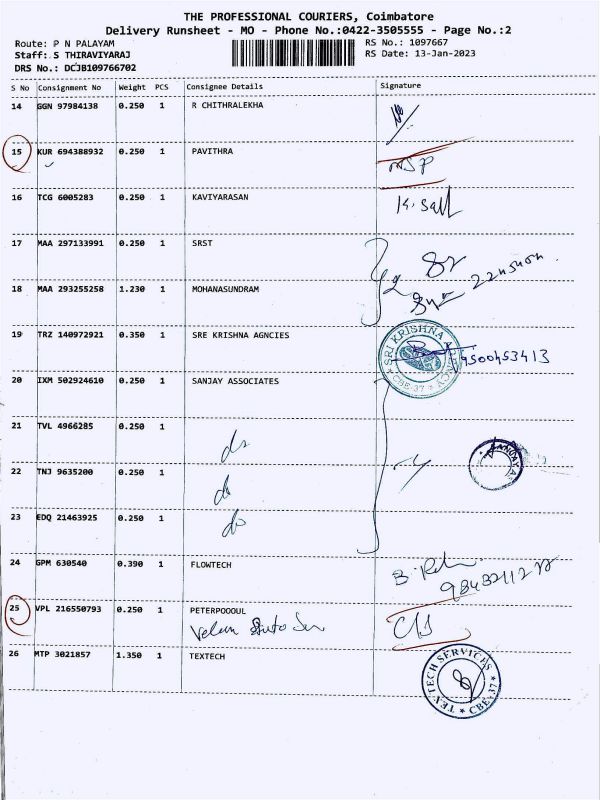 THE PROFESSIONAL COURIERS, Coimbatore
Delivery Runsheet - MO - Phone No.:0422-3505555 - Page No.:2
Route: P N PALAYAM RS No.: 1097667
Staff: S THIRAVIYARAJ RS Date: 13-Jan-2023
DRS No.: DCJB109766702
S No Consignment No Weight PCS Consignee Details Signature
14 GGN 97984138 0.250 1 R CHITHRALEKHA
15 KUR 694388932 0.250 1 PAVITHRA
16 TCG 6005283 0.250 1 KAVIYARASAN
17 MAA 297133991 0.250 1 SRST
18 MAA 293255258 1.230 1 MOHANASUNDRAM
19 TRZ 140972921 0.350 1 SRE KRISHNA AGNCIES
SRI KRISHNA AGENCY
CBE-37
9500453413
20 IXM 502924610 0.250 1 SANJAY ASSOCIATES
21 TVL 4966285 0.250 1
do
22 TNJ 9635200 0.250 1
do
23 EDQ 21463925 0.250 1
do
24 GPM 630540 0.390 1 FLOWTECH
25 VPL 216550793 0.250 1 PETERPOOOUL
26 MTP 3021857 1.350 1 TEXTECH
TEXTECH SERVICES
CBE-37